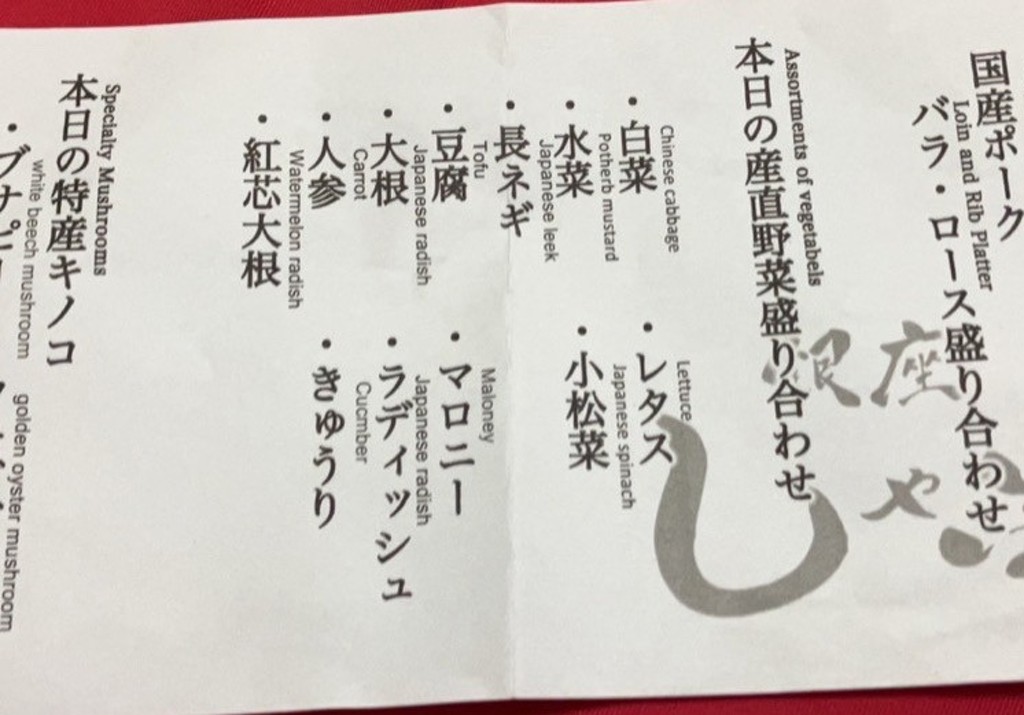 国産ポーク
Loin and Rib Platter
バラ・ロース盛り合わせ
Assortments of vegetabels
本日の産直野菜盛り合わせ
Chinese cabbage
・白菜
Lettuce
・レタス
Potherb mustard
・水菜
Japanese spinach
・小松菜
Japanese leek
・長ネギ
Tofu
・豆腐
Maloney
・マロニー
Japanese radish
・大根
Japanese radish
・ラディッシュ
Carrot
・人参
Cucmber
・きゅうり
Watermelon radish
・紅芯大根
Specialty Mushrooms
本日の特産キノコ
white beech mushroom
golden oyster mushroom
銀座
しゃ